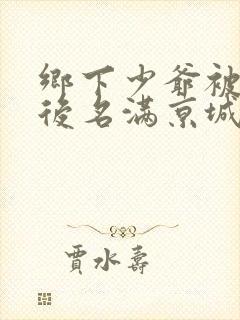 鄉下少爺被
後名滿京城
賈水壽